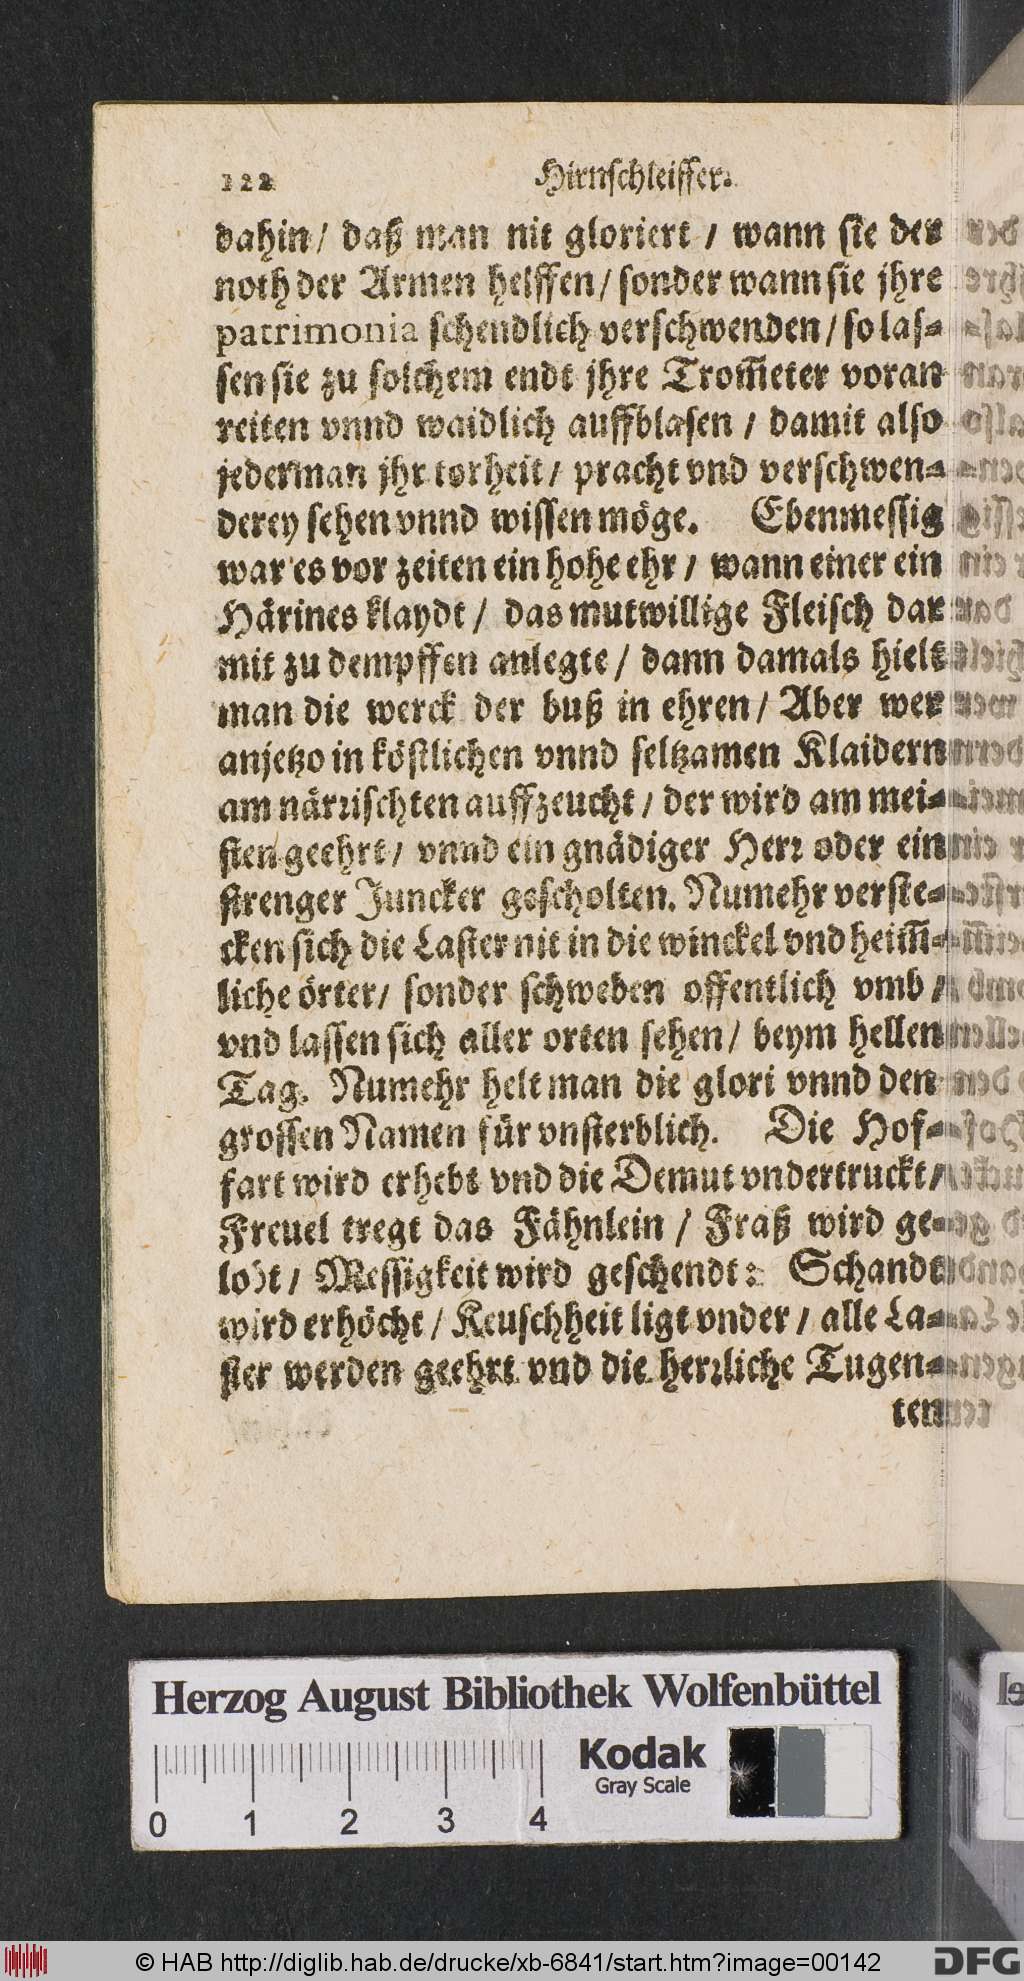 122 Hirnschleiffer.
dahin/ daß man nit gloriert / wann sie der
noth der Armen helffen/ sonder wann sie jhre
patrimonia schendlich verschwenden/ so las⸗
sen sie zu solchem endt jhre Trom̃eter voran
reiten vnnd waidlich auffblasen / damit also
jederman jhr torheit/ pracht vnd verschwen⸗
derey sehen vnnd wissen möge. Ebenmessig
war es vor zeiten ein hohe ehr / wann einer ein
Härines klaydt / das mutwillige Fleisch dar
mit zu dempffen anlegte/ dann damals hielt
man die werck der buß in ehren/ Aber wer
anjetzo in köstlichen vnnd seltzamen Klaidern
am närrischten auffzeucht / der wird am mei⸗
sten geehrt/ vnnd ein gnädiger Herr oder ein
strenger Juncker gescholten. Numehr verste⸗
cken sich die Laster nit in die winckel vnd heim̃⸗
liche örter/ sonder schweben offentlich vmb /
vnd lassen sich aller orten sehen/ beym hellen
Tag. Numehr helt man die glori vnnd den
grossen Namen für vnsterblich. Die Hof⸗
fart wird erhebt vnd die Demut vndertruckt/
Freuel tregt das Fähnlein / Fraß wird ge⸗
lobt / Messigkeit wird geschendt: Schandt
wird erhöcht / Keuschheit ligt vnder / alle La⸗
ster werden geehrt vnd die herrliche Tugen⸗
ten
Herzog August Bibliothek Wolfenbüttel
Kodak
Gray Scale
0 1 2 3 4
© HAB http://diglib.hab.de/drucke/xb-6841/start.htm?image=00142
DFG